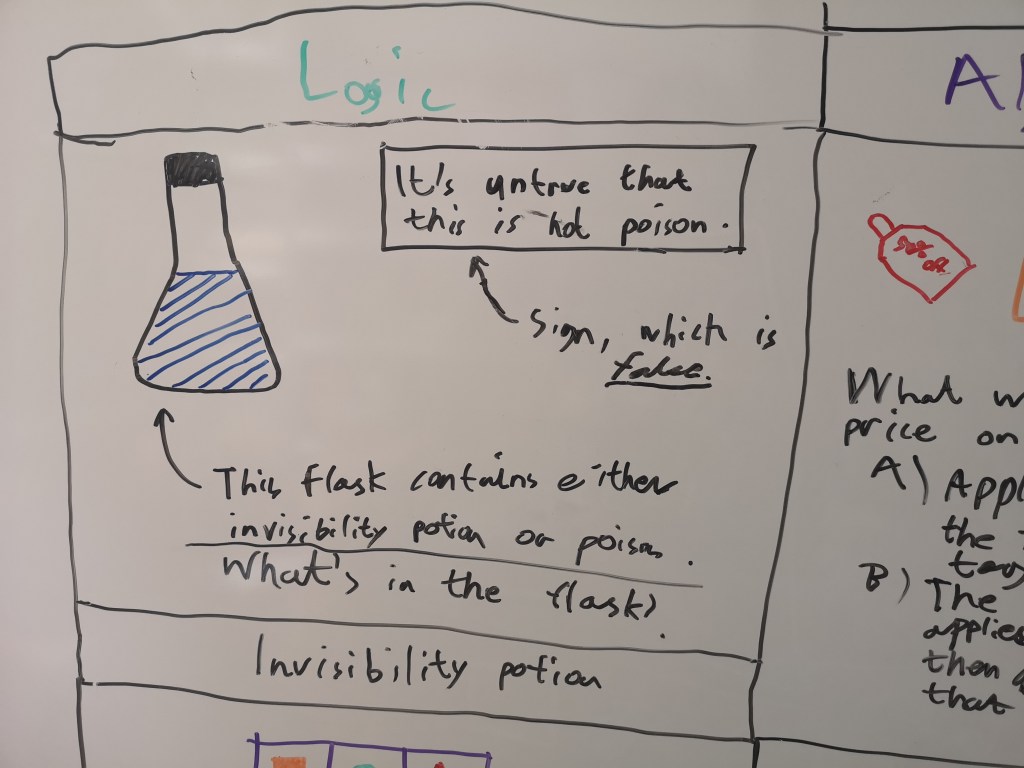 Logic
It's untrue that
this is not poison.
Sign, which is
false.
This flask contains either
invisibility potion or poison.
What's in the flask?
Invisibility potion
50%
off
What w
price on
A) Appl
the
B) The
applies
then
that